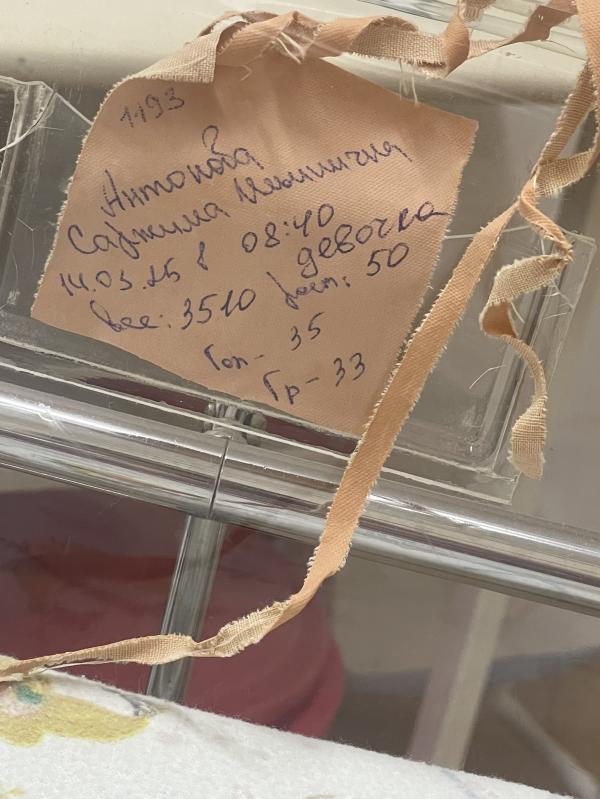 1193
Антонова
Ильинична
14.03.25 в 08:40
девочка
Вес: 3510 рост: 50
Гол- 35
Гр- 33